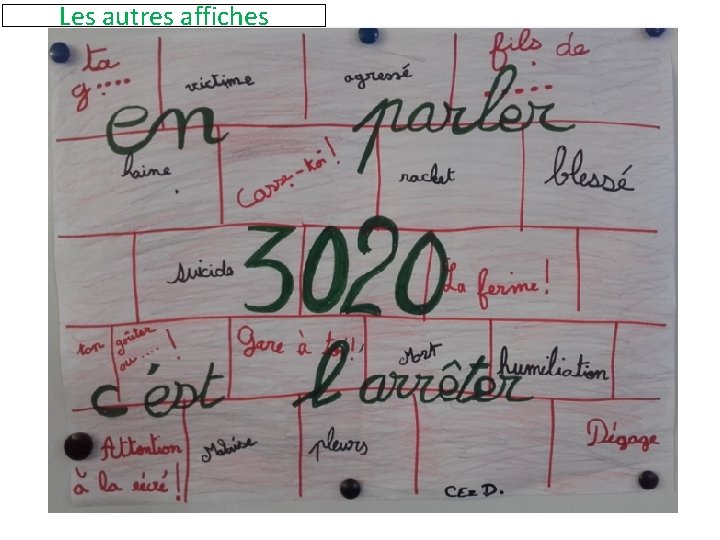 Les autres affiches
ta g....
victime
agressé
fils de .....
en parler
haine.
Casse-toi!
racket
blessé
3020
suicide
La ferme!
ton goûter ou ....!
Gare à toi!
Mort
humiliation
c'est l'arrêter
Attention à la récré!
pleurs
Dégage
CE2 D.